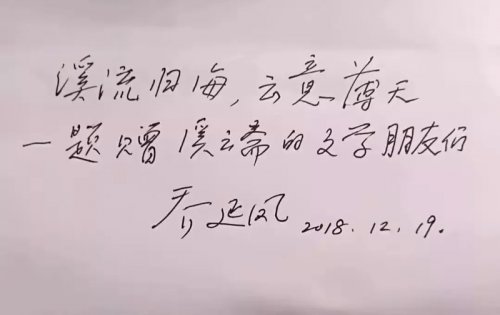 溪流归海，云意薄天
一题赠溪云斋的文学朋友们
乔延风 2018.12.19.